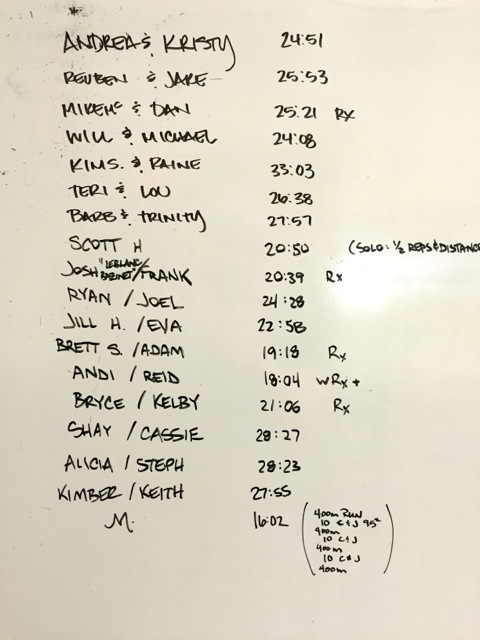 ANDREA & KRISTY 24:51
REUBEN & JAKE 25:53
MIKE Mc & DAN 25:21 Rx
WILL & MICHAEL 24:08
KIM S. & RAINE 33:03
TERI & LOU 26:38
BARB & TRINITY 27:57
SCOTT H 20:50 (SOLO: 1/2 REPS & DISTANCE
JOSH "LEBLANC / FRANK 20:39 Rx
RYAN / JOEL 24:28
JILL H. / EVA 22:58
BRETT S. / ADAM 19:18 Rx
ANDI / REID 18:04 WRx +
BRYCE / KELBY 21:06 Rx
SHAY / CASSIE 28:27
ALICIA / STEPH 28:23
KIMBER / KEITH 27:55
M. 16:02
400m RUN
10 C+J 95#
400m
10 C+J
400m
10 C+J
400m